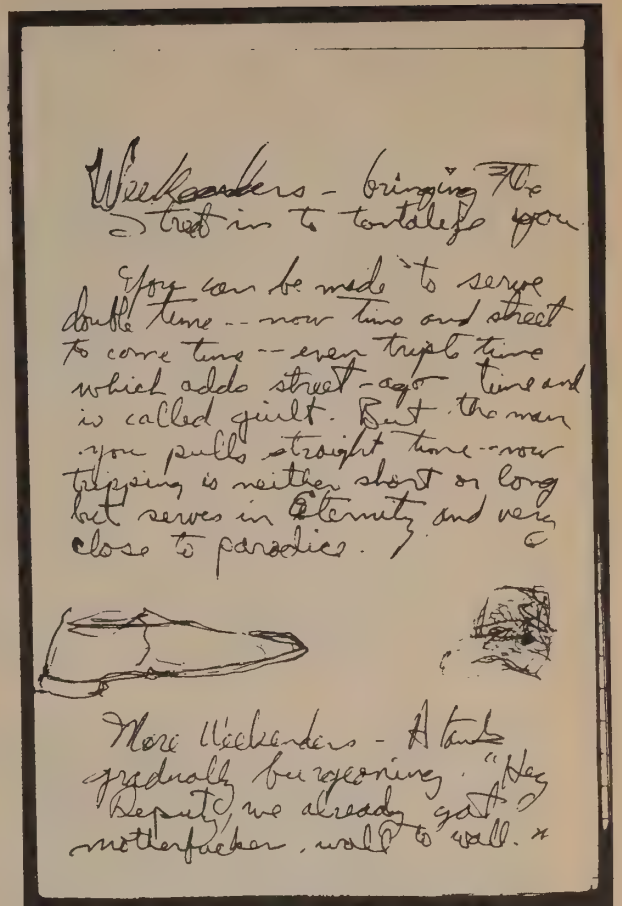 Weekenders - bringing The
Street in to tantalize you
You can be made to serve
double time -- now time and street
to come time -- even triple time
which adds street-ago time and
is called guilt. But the man
you pulls straight time -- now
tripping is neither short or long
but serves in Eternity and very
close to paradise.
More Weekenders - A tank
gradually burgeoning. "Hey
Deputy, we already got
motherfucker, wall to wall."